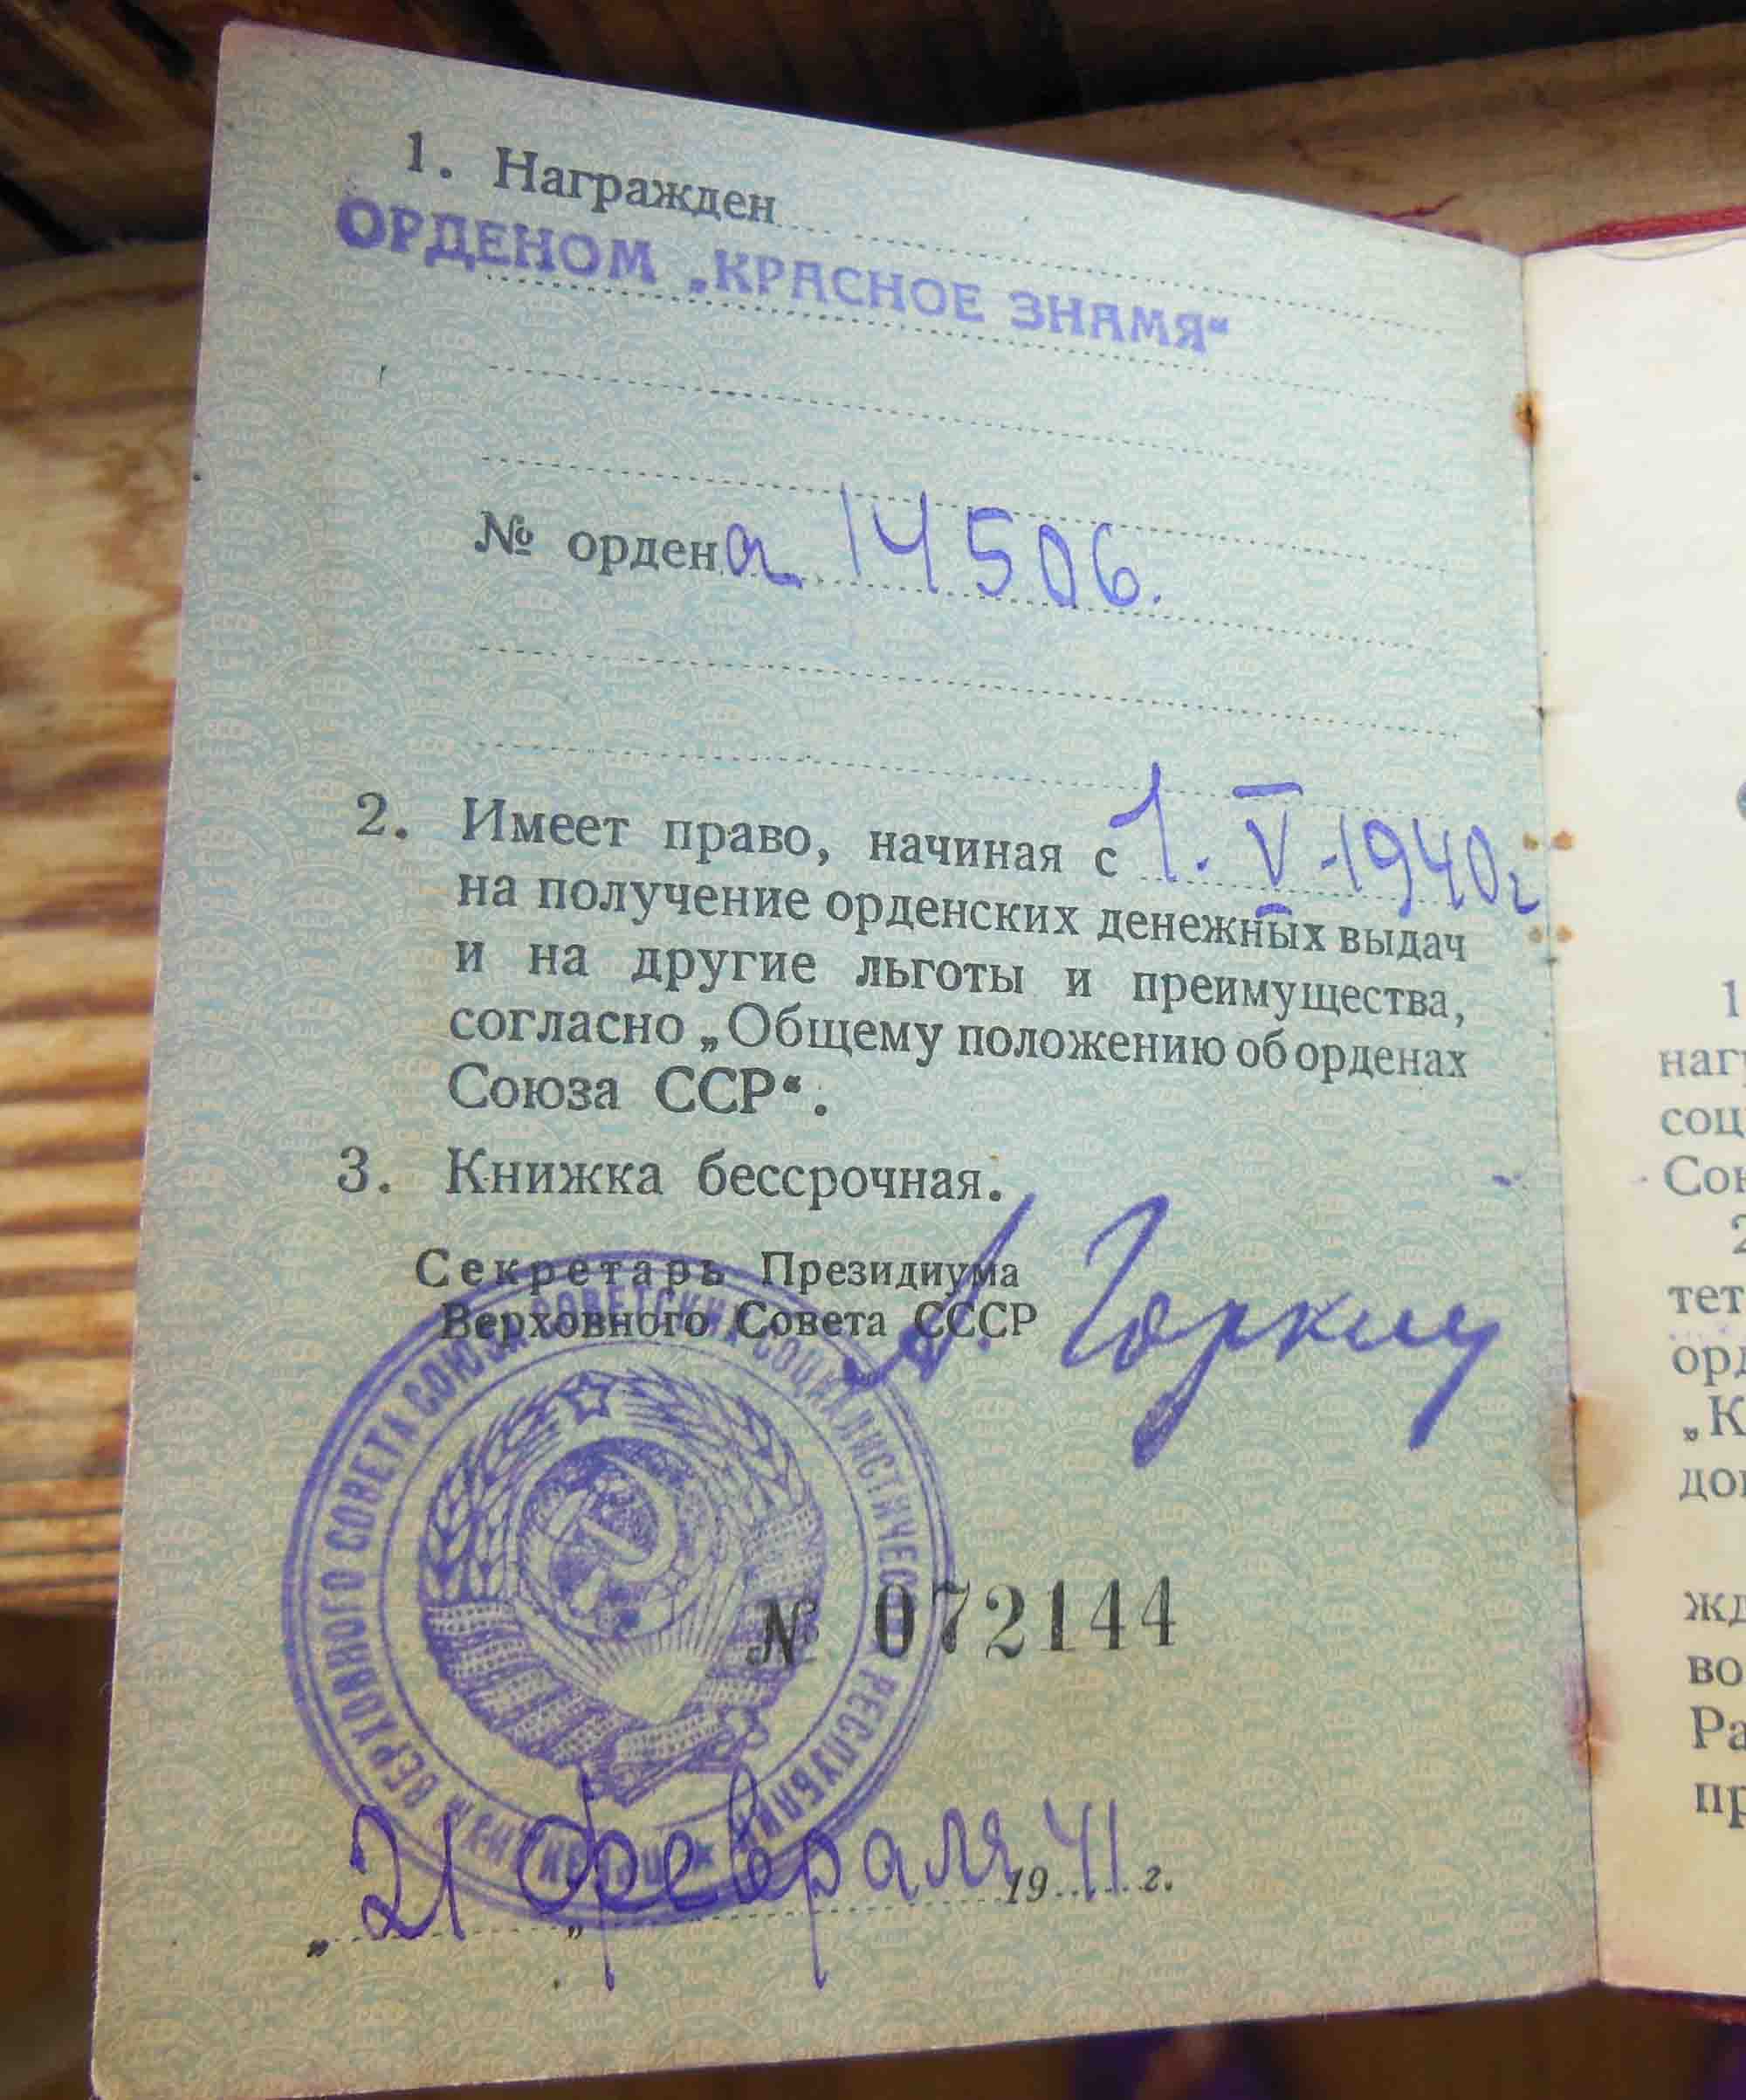 1. Награжден
ОРДЕНОМ „КРАСНОЕ ЗНАМЯ“
№ ордена 14506.
2. Имеет право, начиная с 1. V-1940г
на получение орденских денежных выдач
и на другие льготы и преимущества,
согласно „Общему положению об орденах
Союза ССР“.
3. Книжка бессрочная.
Секретарь Президиума
Верховного Совета СССР
А. Горкин
ВЕРХОВНОГО СОВЕТА СОЮЗА СОВЕТСКИХ СОЦИАЛИСТИЧЕС РЕСПУБЛИК
№ 072144
„21 „ февраля 1941 г.
1
наг
соц
Сою
2
тет
орд
„К
дог
жд
во
Ра
пр